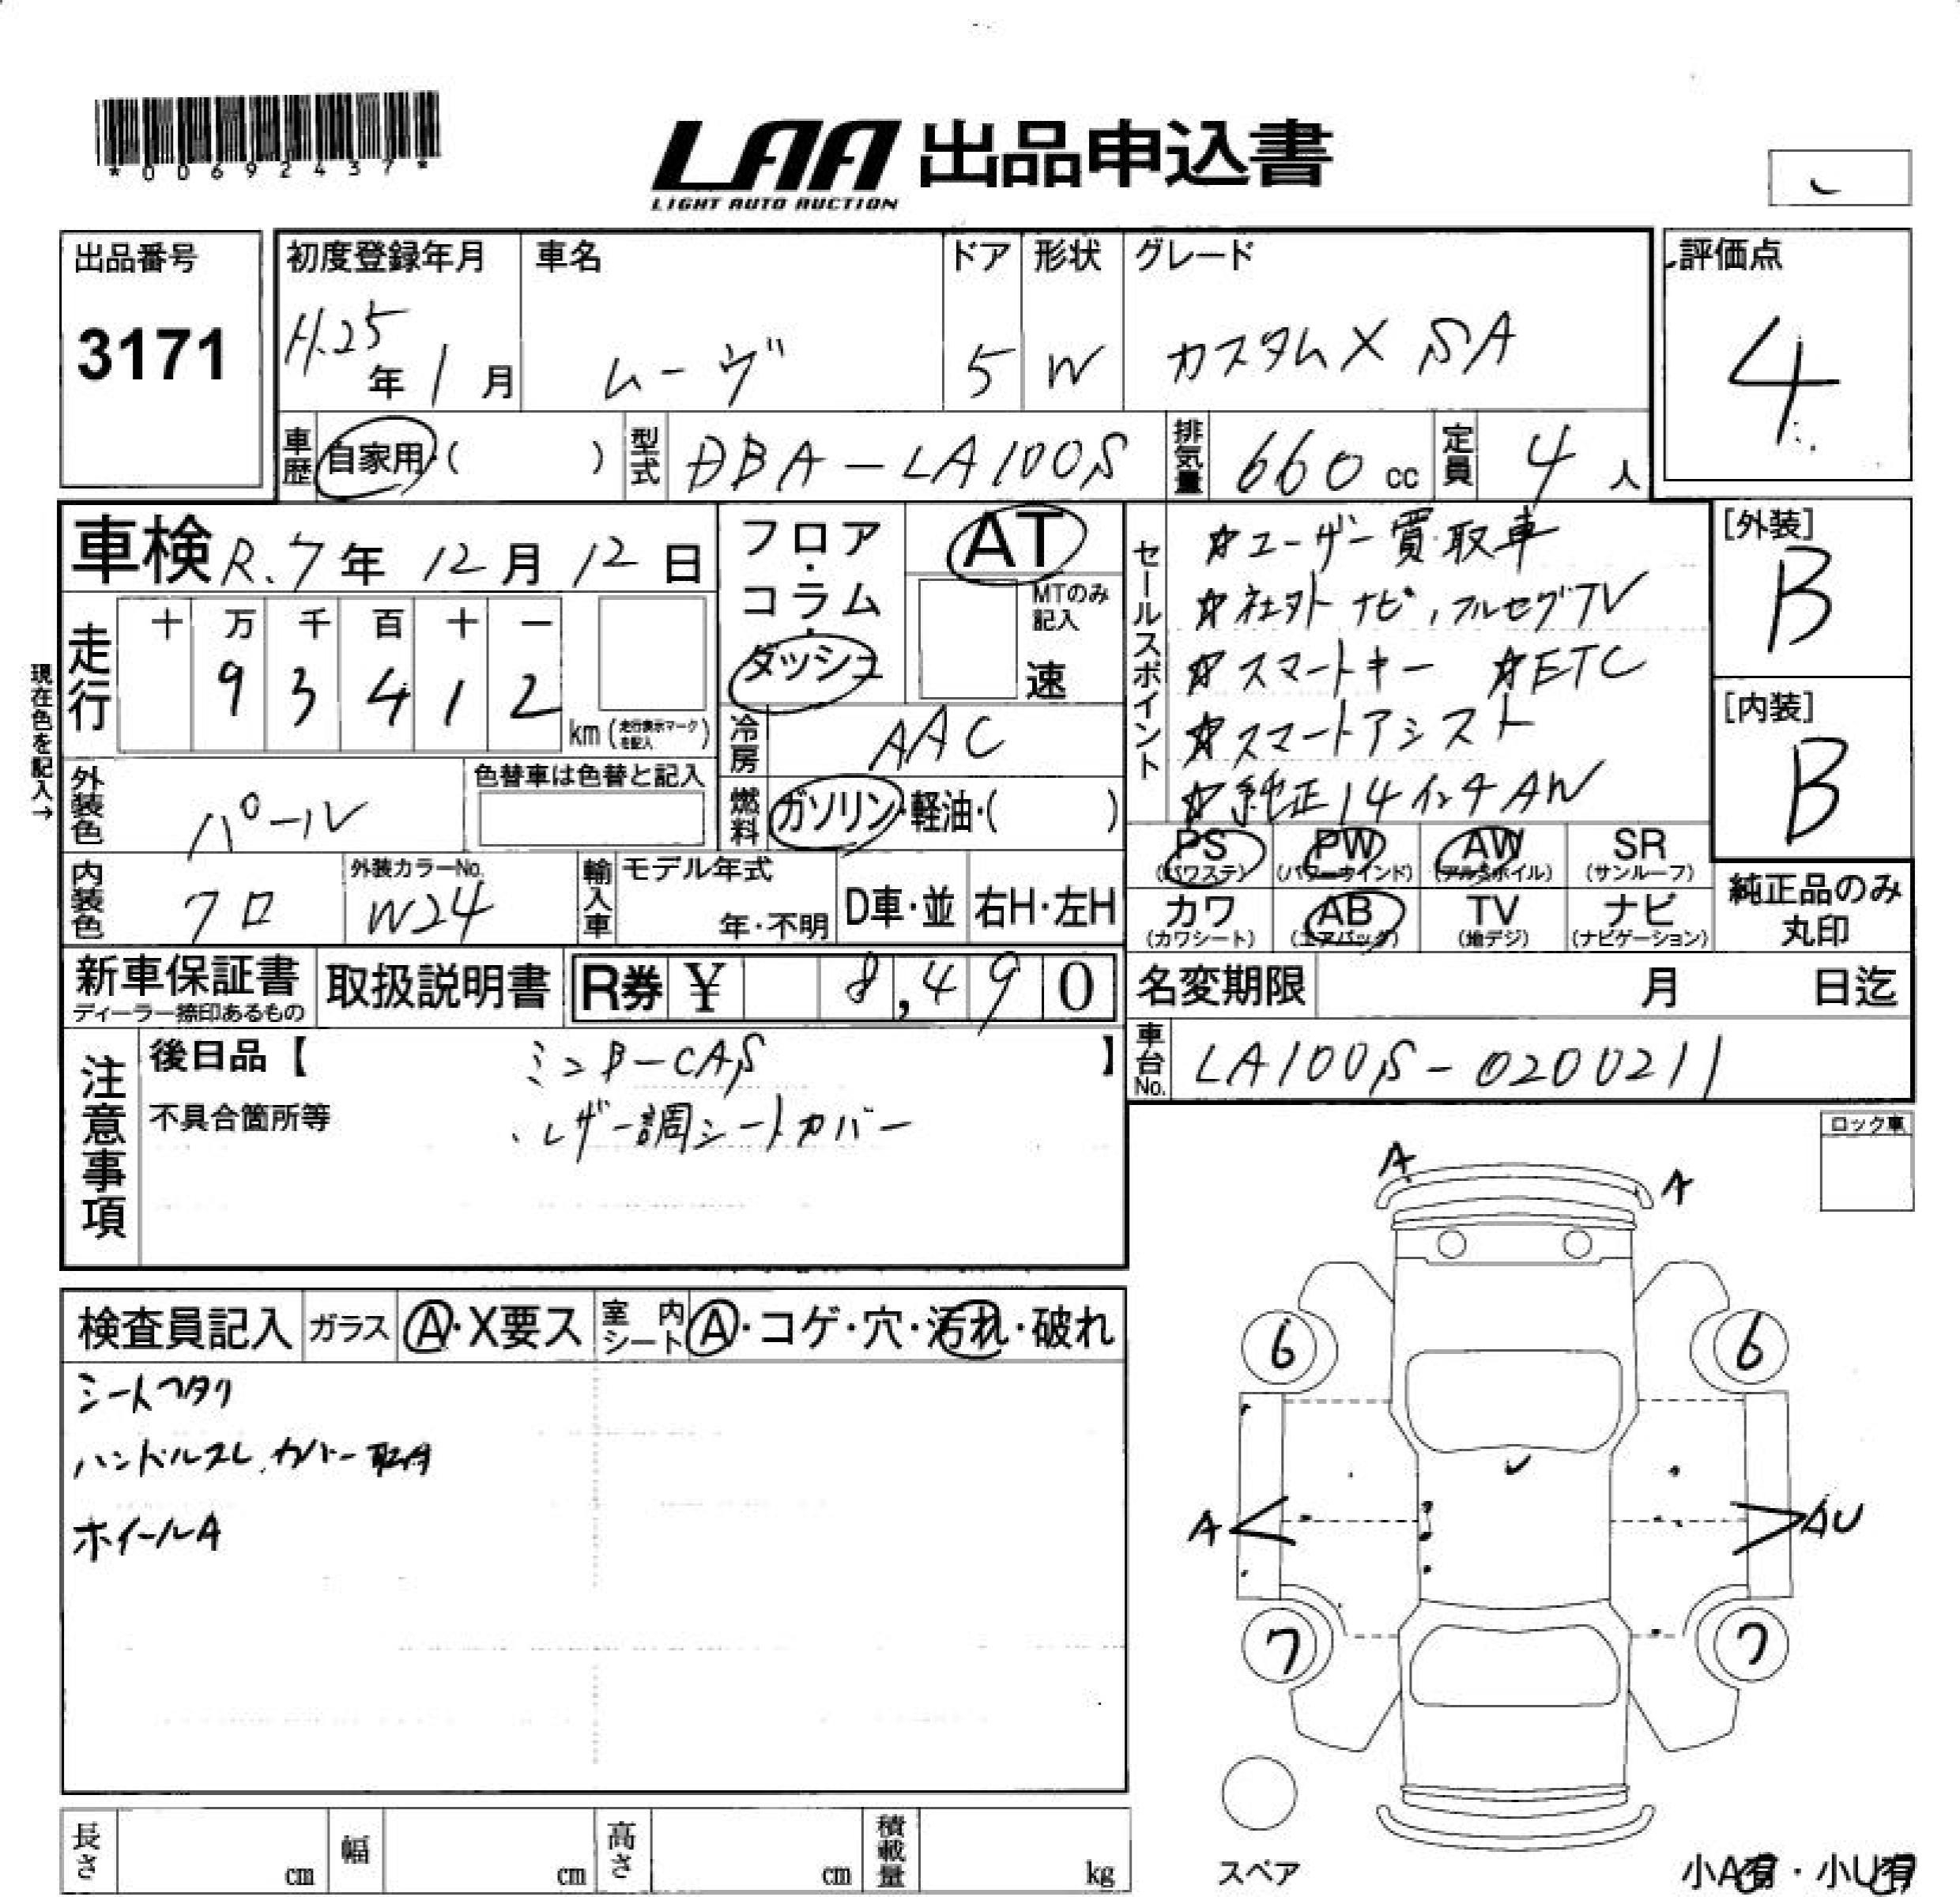 *00692437*
LAA 出品申込書
LIGHT AUTO AUCTION
出品番号
3171
初度登録年月
H.25年1月
車名
ムーヴ
ドア
5
形状
W
グレード
カスタムX SA
評価点
4
車歴
自家用・( )
型式
DBA-LA100S
排気量
660cc
定員
4人
車検 R.7年12月12日
走行
十 万 千 百 十 一
9 3 4 1 2
km (走行表示マークを記入)
現在色を記入→
フロア・コラム・ダッシュ
AT
MTのみ記入
速
冷房
AAC
燃料
ガソリン・軽油・( )
セールスポイント
☆ユーザー買取車
☆社外ナビ,フルセグTV
☆スマートキー ☆ETC
☆スマートアシスト
☆純正14インチAW
[外装]
B
[内装]
B
外装色
パール
色替車は色替と記入
内装色
クロ
外装カラーNo.
W24
輸入車
モデル年式
年・不明
D車・並
右H・左H
PS (パワステ)
PW (パワーウインド)
AW (アルミホイル)
SR (サンルーフ)
カワ (カワシート)
AB (エアバッグ)
TV (地デジ)
ナビ (ナビゲーション)
純正品のみ丸印
新車保証書
ディーラー捺印あるもの
取扱説明書
R券 ¥ 8,490
名変期限 月 日迄
車台No.
LA100S-0200211
注意事項
後日品【 ミニB-CAS 】
不具合箇所等
レザー調シートカバー
ロック車
検査員記入
ガラス
A・X要ス
室内シート
A・コゲ・穴・汚れ・破れ
シートヘタリ
ハンドルスレ.カバー取付
ホイールA
A
A
6
6
A
AU
7
7
スペア
小A有・小U有
長さ cm
幅 cm
高さ cm
積載量 kg